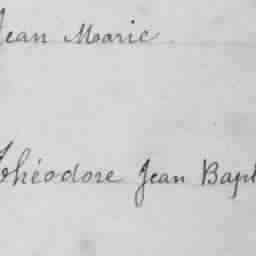 Jean Marie
Théodore Jean Bapt